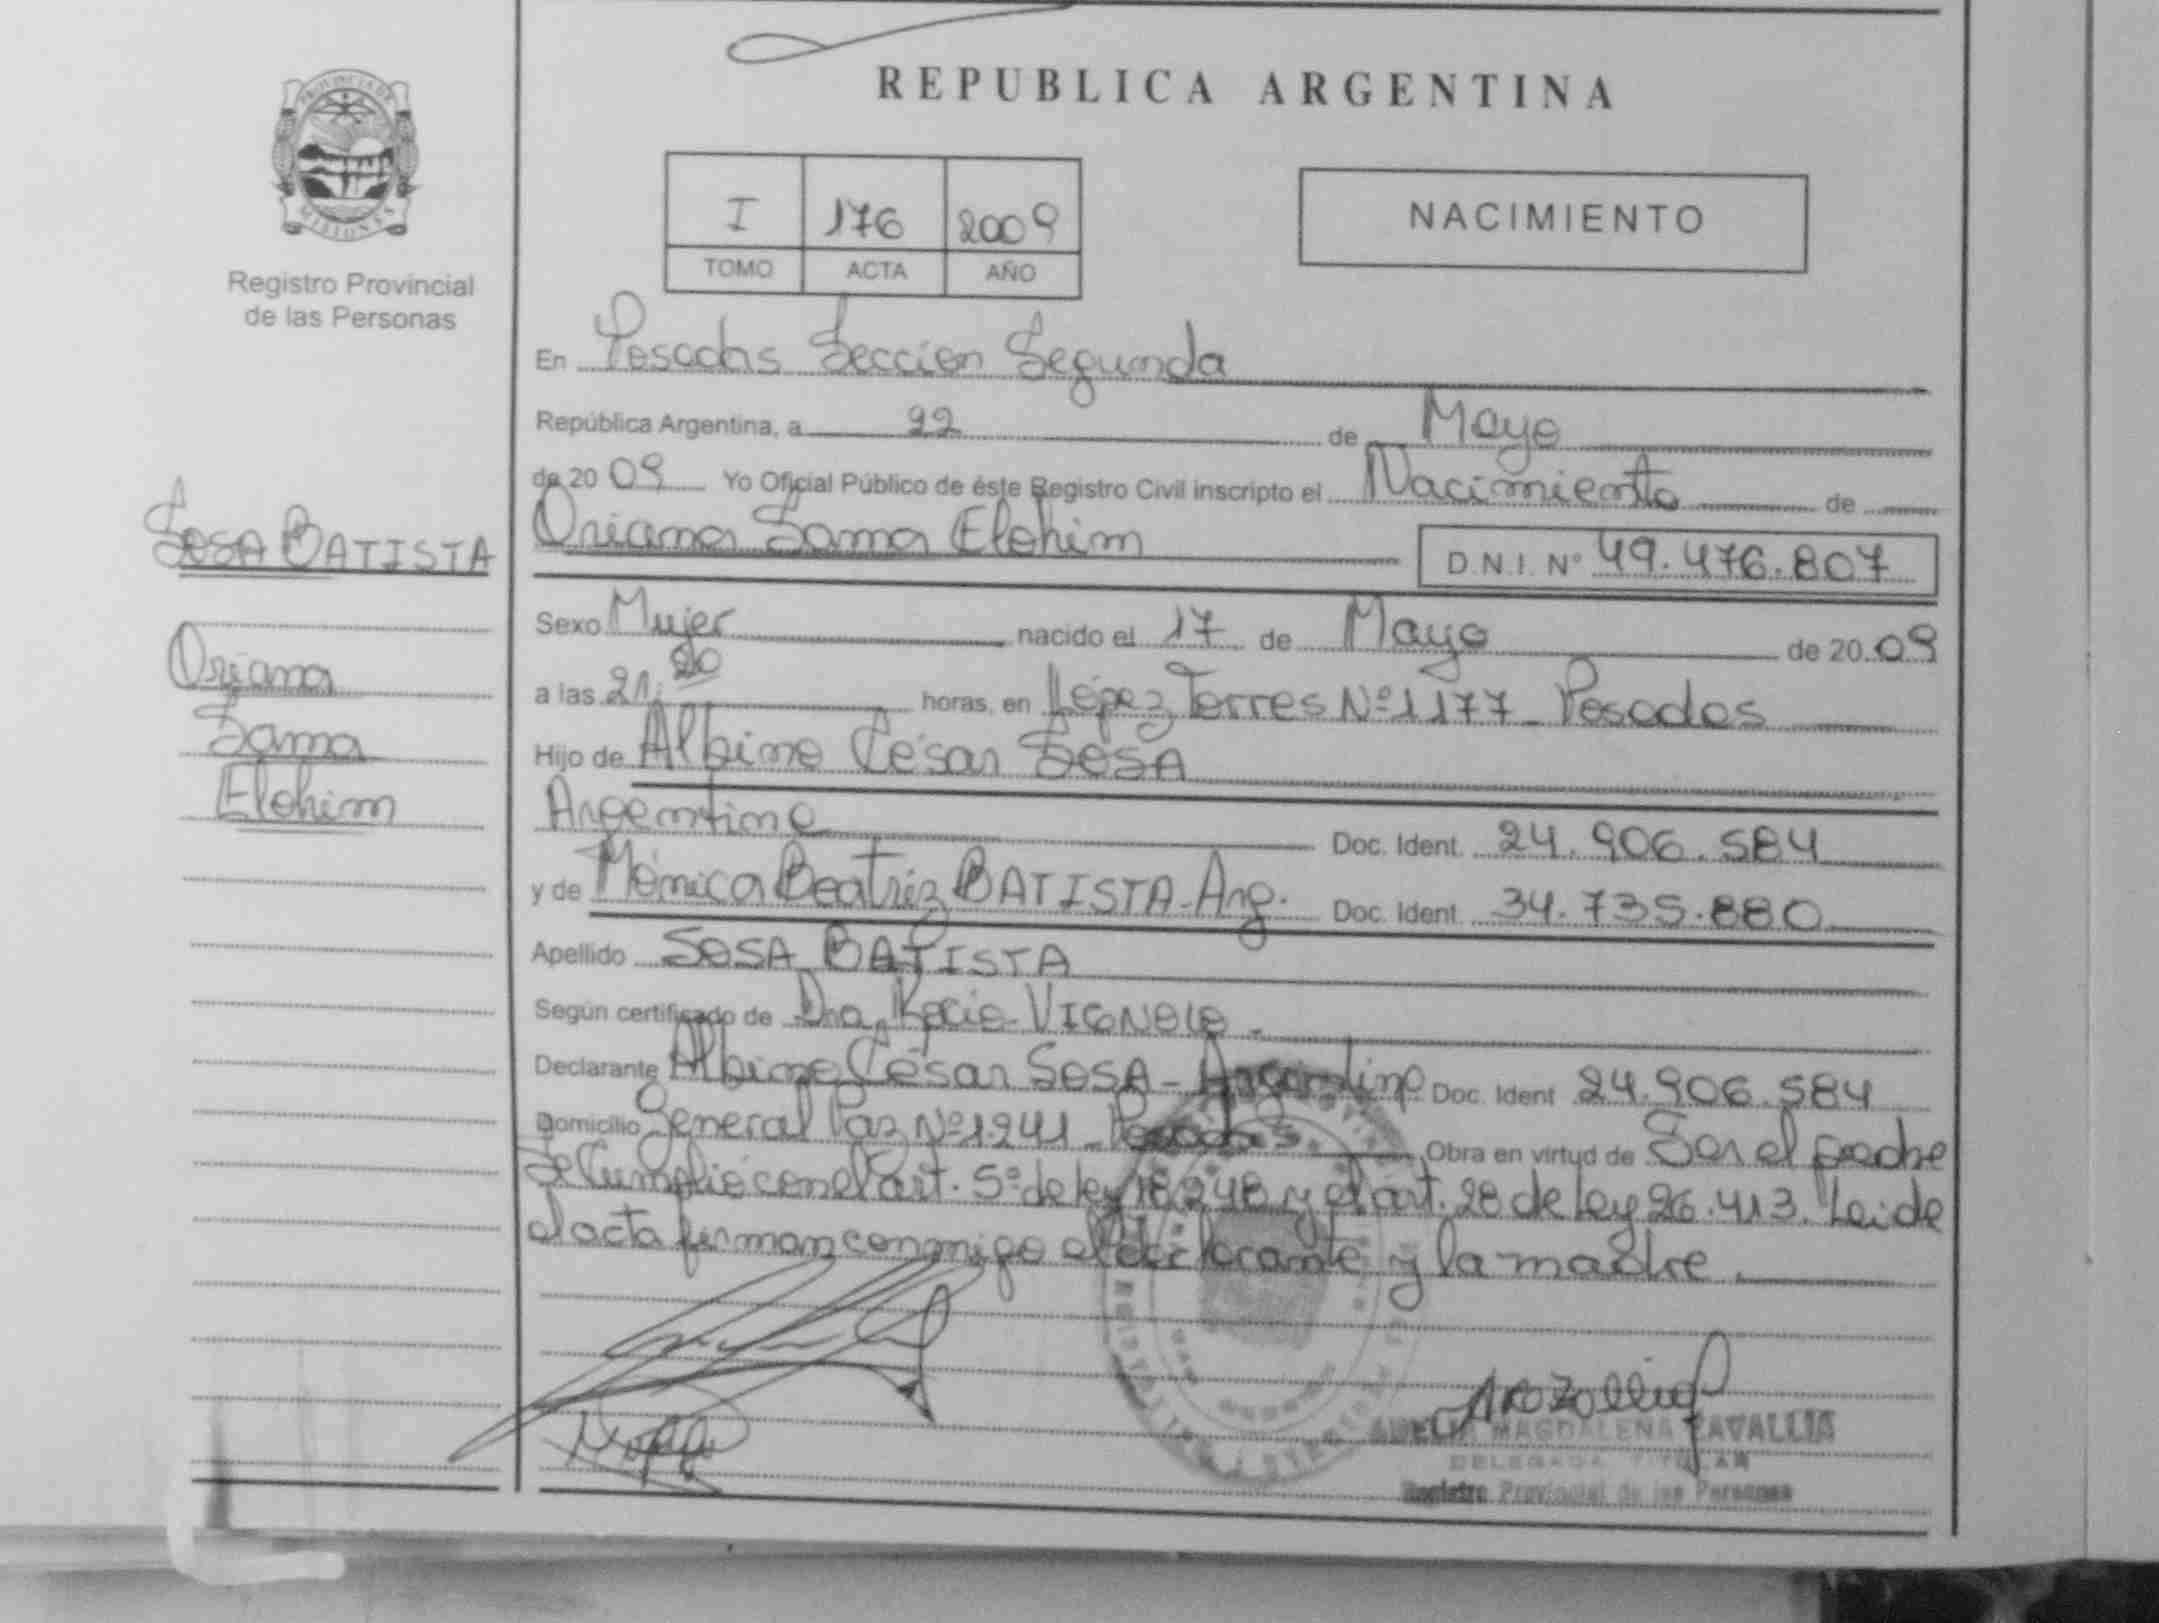 REPUBLICA ARGENTINA
PROVINCIA DE
MISIONES
Registro Provincial
de las Personas
I 176 2009
TOMO ACTA AÑO
NACIMIENTO
En Posadas Sección Segunda
República Argentina, a 22 de Mayo
de 2009 Yo Oficial Público de éste Registro Civil inscripto el Nacimiento de
Oriana Sama Elohim D.N.I. Nº 49.476.807
SOSA BATISTA
Oriana
Sama
Elohim
Sexo Mujer nacido el 17 de Mayo de 2009
a las 21:20 horas, en López Torres Nº 1177 - Posadas
Hijo de Albino César SOSA
Argentino Doc. Ident. 24.906.584
y de Mónica Beatriz BATISTA - Arg. Doc. Ident. 34.735.880
Apellido SOSA BATISTA
Según certificado de Dra. Rocio VIGNOLO -
Declarante Albino César SOSA - Argentino Doc. Ident 24.906.584
Domicilio General Paz Nº 1241 - Posadas Obra en virtud de Ser el padre
Se Cumplió con el art. 5º de ley 18248 y el art. 28 de ley 26.413. Leida
el acta firman conmigo el declarante y la madre.
MAGDALENA ZAVALLIA
DELEGADA TITULAR
Registro Provincial de las Personas